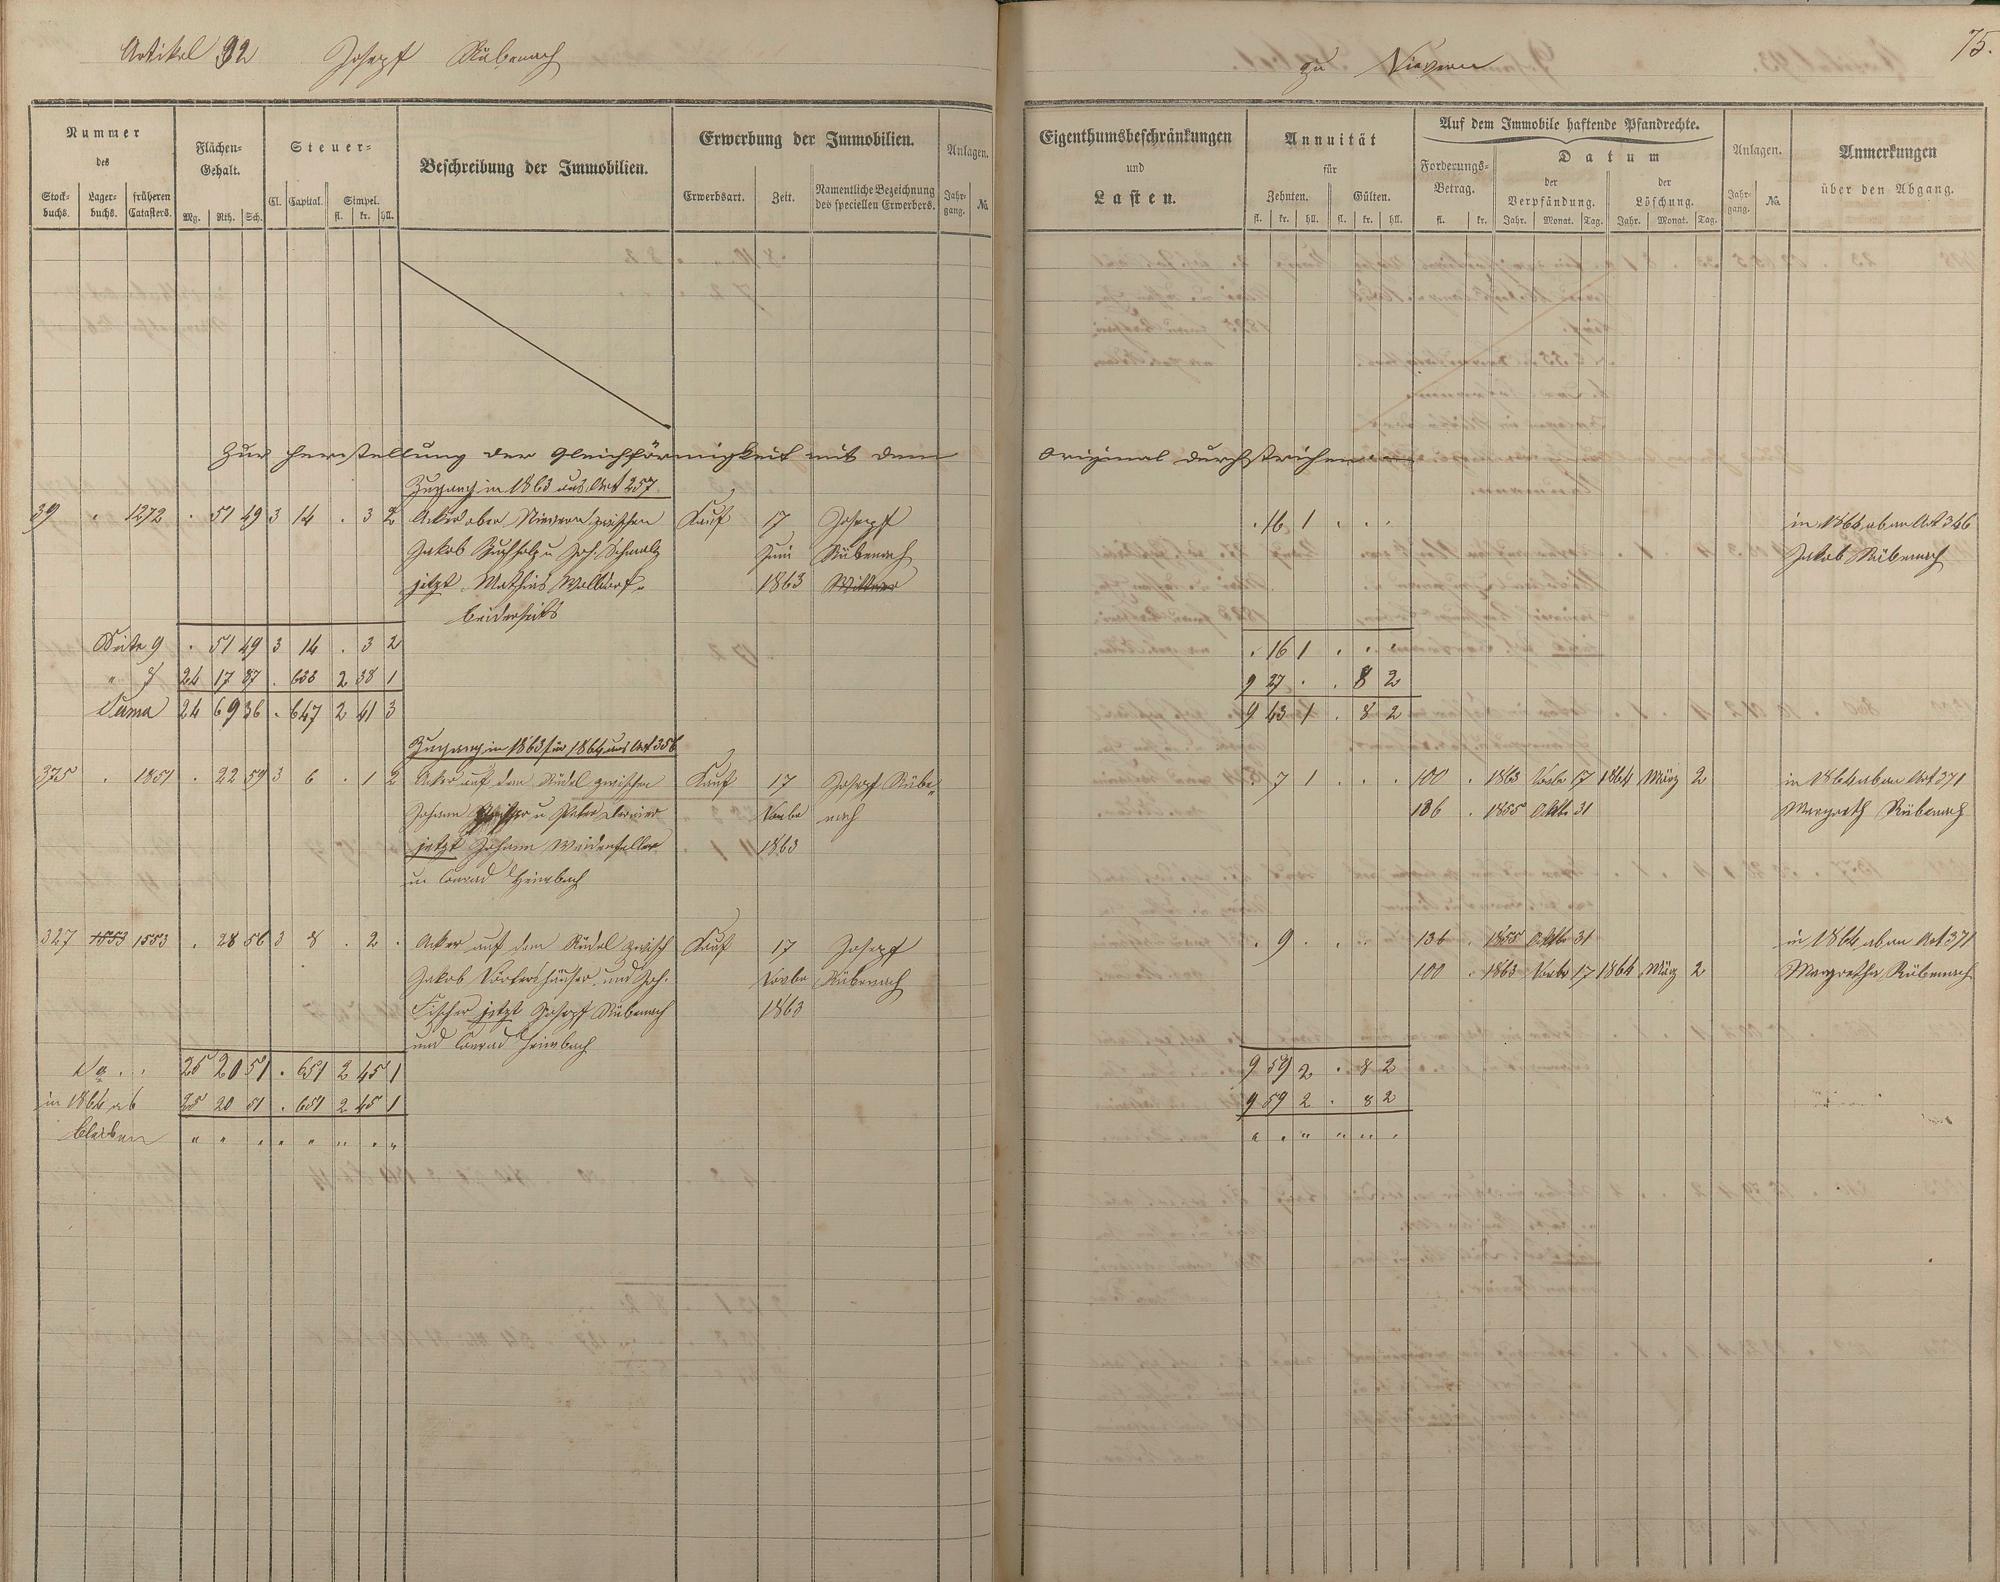 Artikel 92 Joseph Rübenach zu Nievern 75.
Nummer des
Stockbuchs. Lagerbuchs. früheren Catasters.
Flächen-Gehalt.
Mg. Rth. Sch.
Steuer-
Cl. Capital. Simpel.
fl. kr. hll.
Beschreibung der Immobilien.
Erwerbung der Immobilien.
Erwerbsart. Zeit. Namentliche Bezeichnung des speciellen Erwerbers.
Anlagen.
Jahrgang. №
Eigenthumsbeschränkungen
und
Lasten.
Annuität
für
Zehnten. Gülten.
fl. kr. hll. fl. kr. hll.
Auf dem Immobile haftende Pfandrechte.
Forderungs-Betrag.
fl. kr.
Datum
der Verpfändung. der Löschung.
Jahr. Monat. Tag. Jahr. Monat. Tag.
Anlagen.
Jahrgang. №
Anmerkungen
über den Abgang.
Zur Herstellung der Gleichförmigkeit mit dem Original durchstrichen
Zugang in 1863 aus Art 257
39 . 1272 . 51 49 3 14 . 3 2 Acker ober Nievern zwischen Kauf 17 Joseph . 16 1 . . . in 1864 ab an Art 346
Jakob Buchholz u Joh. Schmalz Juni Rübenach Jakob Rübenach
jetzt Mathias Walldorf 1863
beiderseits
Seite 9 . 51 49 3 14 . 3 2 . 16 1 . . .
" 24 17 87 . 633 2 38 1 9 27 . . 8 2
Suma 24 69 36 . 647 2 41 3 9 43 1 . 8 2
Zugang in 1863 für 1864 aus Art 356
375 . 1851 . 22 59 3 6 . 1 2 Acker auf dem Rüdel zwischen Kauf 17 Joseph Rübe- . 7 1 . . . 100 . 1863 Novbr 17 1864 März 2 in 1864 ab an Art 371
Johann u Peter Novbr nach 136 . 1855 Oktbr 31 Margreth Rübenach
jetzt Johann Weidenfeller 1863
u Conrad Heimbach
327 1553 1553 . 28 56 3 8 . 2 . Acker auf dem Rüdel zwisch Kauf 17 Joseph . 9 . . . . 136 . 1855 Oktbr 31 in 1864 ab an Art 371
Jakob und Joh. Novbr Rübenach 100 . 1863 Novbr 17 1864 März 2 Margretha Rübenach
Fischer jetzt Joseph Rübenach 1863
und Conrad Heimbach
Sa . . 25 20 51 . 651 2 45 1 9 59 2 . 8 2
in 1864 ab 25 20 51 . 651 2 45 1 9 59 2 . 8 2
bleiben " " " " " " " "